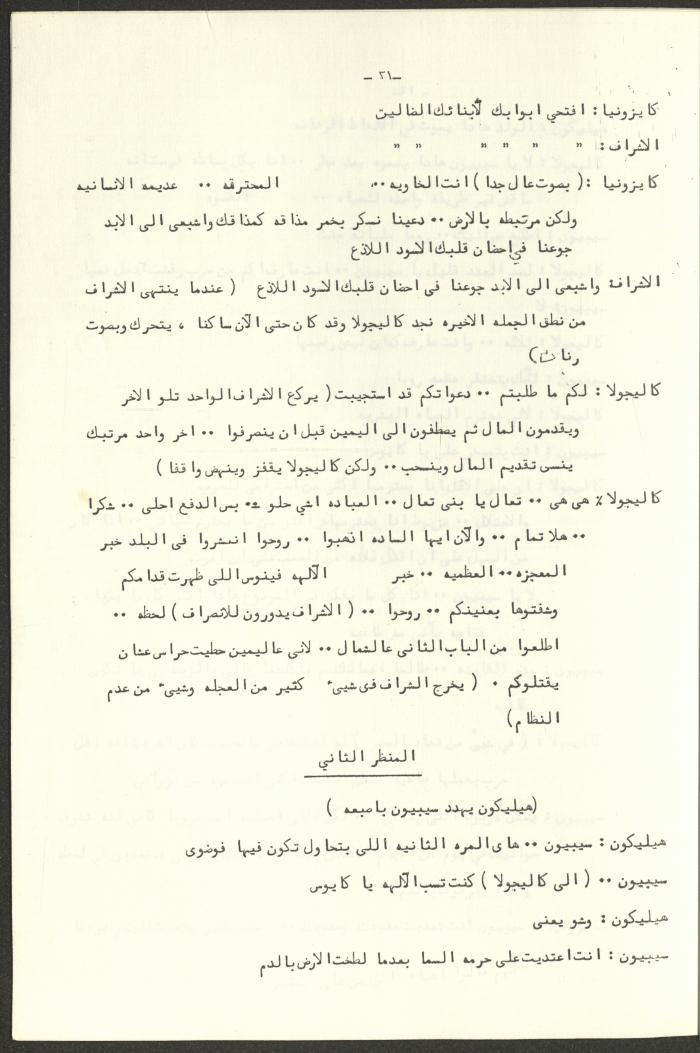 ـ٢١ـ
كايزونيا : افتحي ابوابك لأبنائك الضالين
الاشراف : " " " " " " "
كايزونيا : ( بصوت عال جدا ) انت الخاويه ٠٠ المحترقه ٠٠ عديمه الانسانيه
ولكن مرتبطه بالارض ٠٠ دعينا نسكر بخمر مذاقه كمذاقك واشبعى الى الابد
جوعنا في احضان قلبك الاسود اللاذع
الاشراف: واشبعى الى الابد جوعنا فى احضان قلبك الاسود اللاذع ( عندما ينتهى الاشراف
من نطق الجمله الاخيره نجد كاليجولا وقد كان حتى الآن ساكنا ، يتحرك وبصوت
رنان)
كاليجولا : لكم ما طلبتم ٠٠ دعواتكم قد استجيبت ( يركع الاشراف الواحد تلو الاخر
ويقدمون المال ثم يصطفون الى اليمين قبل ان ينصرفوا ٠٠ اخر واحد مرتبك
ينسى تقديم المال وينسحب ٠٠ ولكن كاليجولا يقفز وينهض واقفا )
كاليجولا ٪ هى هى ٠٠ تعال يا بنى تعال ٠٠ العباده اشي حلو ٠٠ بس الدفع احلى ٠٠ شكرا
٠٠ هلا تمام ٠٠ والآن ايها الساده اذهبوا ٠٠ روحوا انشروا فى البلد خبر
المعجزه ٠٠ العظميه ٠٠ خبر الآلهه فينوس اللى ظهرت قدامكم
وشفتوها بعنينكم ٠٠ روحوا ٠٠ ( الاشراف يدورون للانصراف ) لحظه ٠٠
اطلعوا من الباب الثانى عالشمال ٠٠ لانى عاليمين حطيت حراس عشان
يقتلوكم ٠ ( يخرج الشراف فى شيىء كثير من العجله وشيىء من عدم
النظام)
المنظر الثاني
(هيليكون يهدد سيبيون باصبعه )
هيليكون : سيبيون ٠٠ هاى المره الثانيه اللى بتحاول تكون فيها فوضوى
سيبيون ٠٠ ( الى كاليجولا ) كنت تسب الآلهه يا كايوس
هيليكون : وشو يعنى
سيبيون : انت اعتديت على حرمه السما بعدما لطخت الارض بالدم